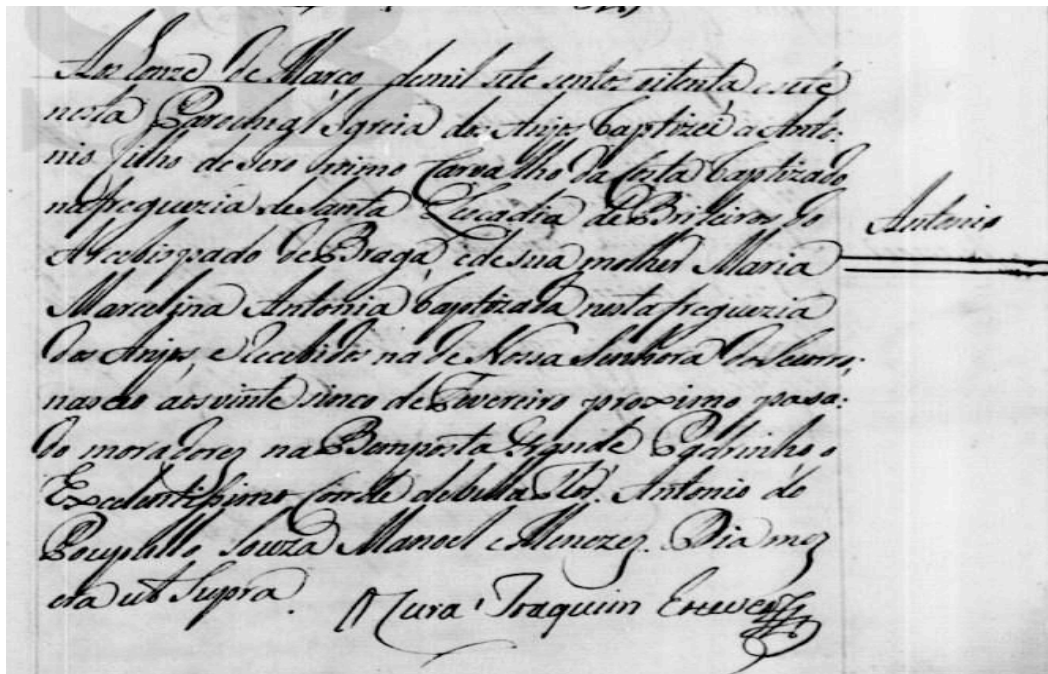 Aos onze de Março de mil sete sentos oitenta e sete
nesta Parochial Igreia dos Anjos baptizei a Anto-
nio filho de Jeronimo Carvalho da Costa baptizado
na freguezia de Santa Leocadia de Briteiros do
Arcebispado de Braga, e de sua molher Maria
Marcelina Antonia baptizada nesta freguezia
dos Anjos, e recebidos na de Nossa Senhora do Socorro,
nasceo aos vinte sinco de Fevereiro proximo pasa-
do moradores na Bemposta grande Padrinho o
Excelentissimo Conde de Villa Flor. Antonio de
Souza Manoel e Menezes. Dia mez
era ut supra. O Cura Joaquim Esteves
Antonio